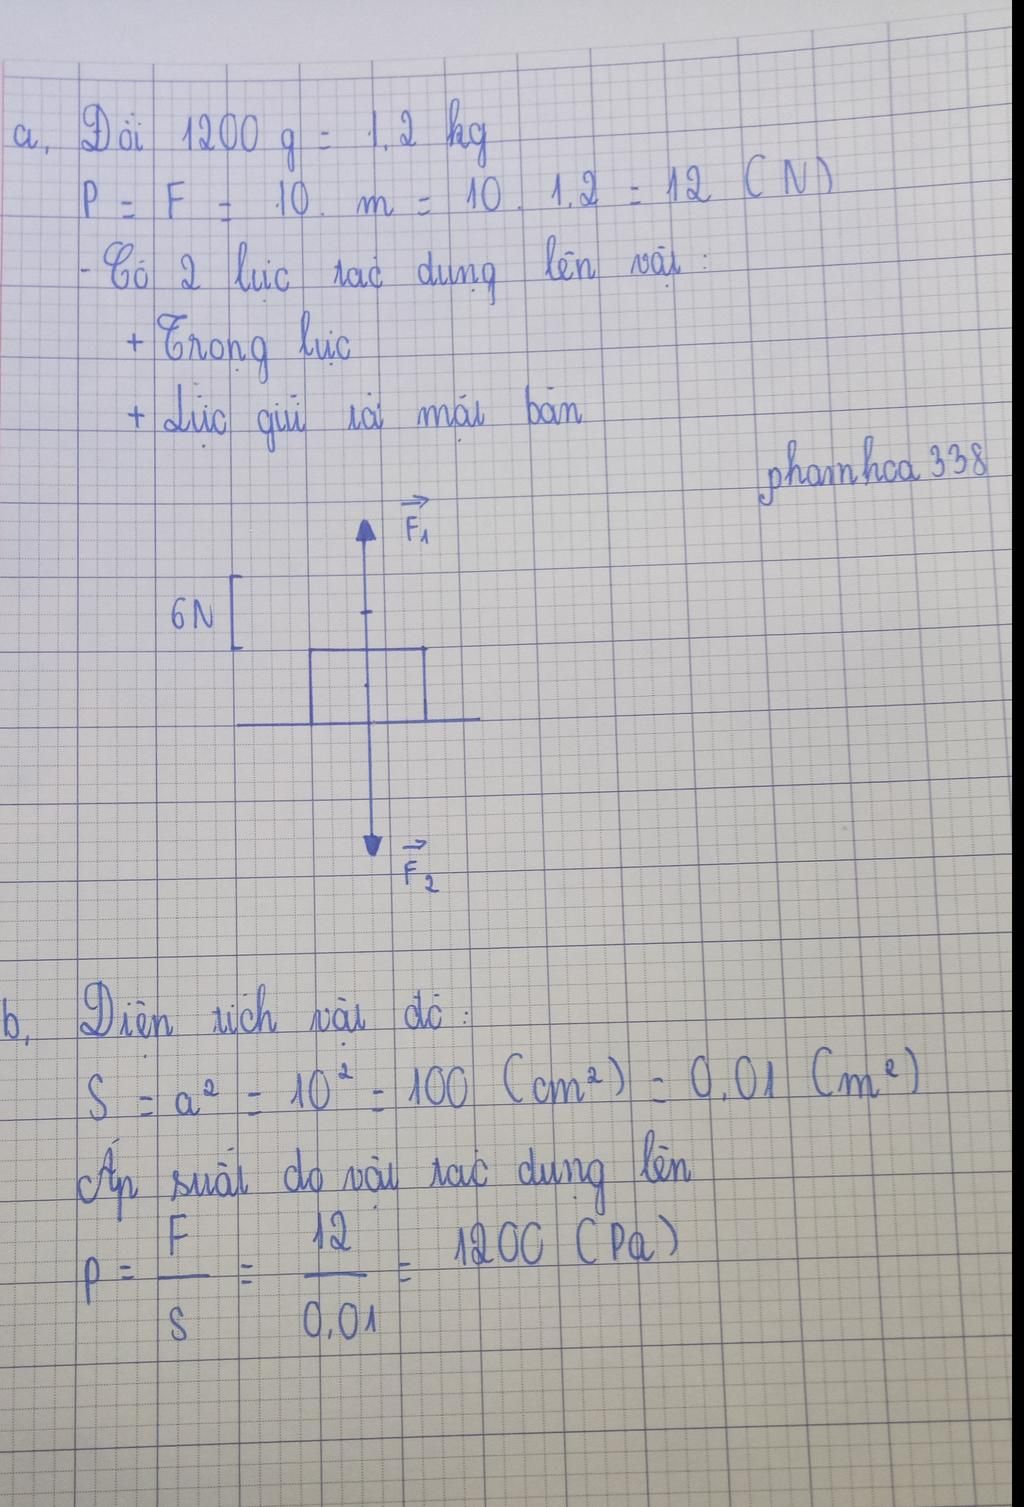 a, Đổi 1200 g = 1,2 kg
P = F = 10. m = 10. 1,2 = 12 (N)
- Có 2 lực tác dụng lên vật:
+ Trọng lực
+ Lực giữ từ mặt bàn
phamhoa338
F₁
6N
F₂
b, Diện tích vật đó:
S = a² = 10² = 100 (cm²) = 0,01 (m²)
Áp suất do vật tác dụng lên
p = F/S = 12/0,01 = 1200 (Pa)